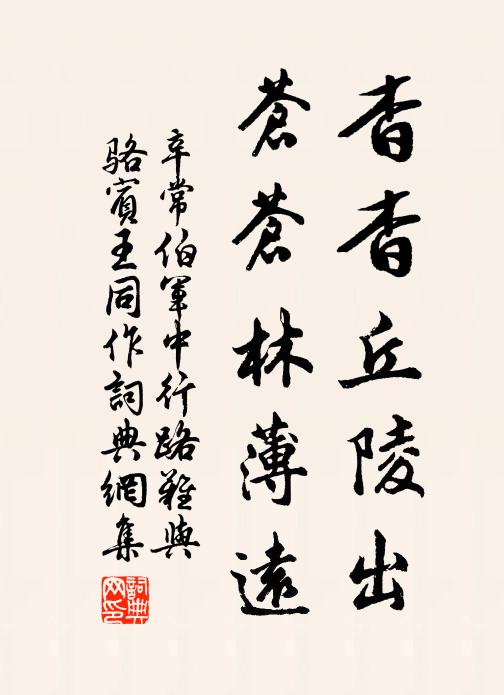 杳杳丘陵出
蒼蒼林薄遠
辛常伯軍中行路難與
駱賓王同作詞典網集
詞典网印